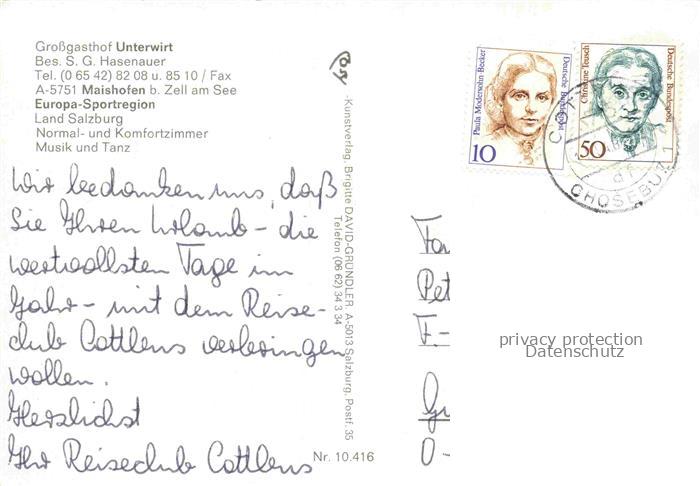 Großgasthof Unterwirt
Bes. S. G. Hasenauer
Tel. (0 65 42) 82 08 u. 85 10 / Fax
A-5751 Maishofen b. Zell am See
Europa-Sportregion
Land Salzburg
Normal- und Komfortzimmer
Musik und Tanz
Wir bedanken uns, daß
Sie Ihren Urlaub - die
wertvollsten Tage im
Jahr - mit dem Reise-
club Cottbus verbringen
wollen.
Herzlichst
Ihr Reiseclub Cottbus
Kunstverlag, Brigitte DAVID-GRÜNDLER, A-5013 Salzburg, Postf. 35
Telefon (06 62) 34 3 34
Nr. 10.416
Paula Modersohn-Becker
Deutsche Bundespost
10
Christine Teusch
Deutsche Bundespost
50
CHOŚEBUZ 1
Pet
F.-
O-
privacy protection
Datenschutz